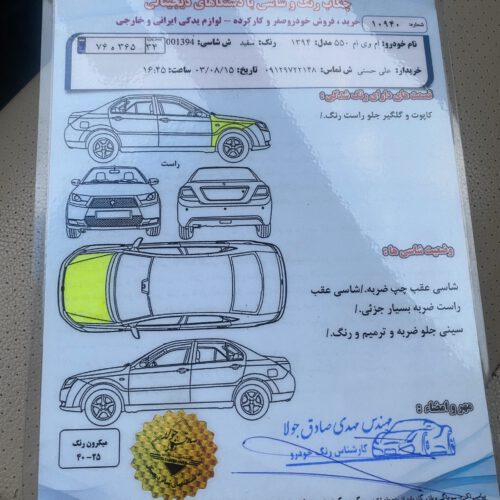 چکاپ رنگ و شاسی با دستگاههای دیجیتالی
خرید، فروش خودروصفر و کارکرده - لوازم یدکی ایرانی و خارجی
شماره: ۱۰۹۴۰
نام خودرو: ام وی ام ۵۵۰ مدل: ۱۳۹۴ رنگ: سفید ش شاسی: 001394
۳۴ ۷۶ ۵ ۳۶۵
خریدار: علی حسنی ش تماس: ۰۹۱۲۹۷۲۲۱۴۸ تاریخ: ۰۳/۰۸/۱۵ ساعت: ۱۶:۴۵
قسمت های دارای رنگ شدگی:
کاپوت و گلگیر جلو راست رنگ./
راست
وضعیت شاسی ها:
شاسی عقب چپ ضربه./شاسی عقب
راست ضربه بسیار جزئی./
سینی جلو ضربه و ترمیم و رنگ./
مهر و امضاء:
مهندس مهدی صادق جولا
کارشناس رنگ خودرو
میکرون رنگ
۴۰-۲۵